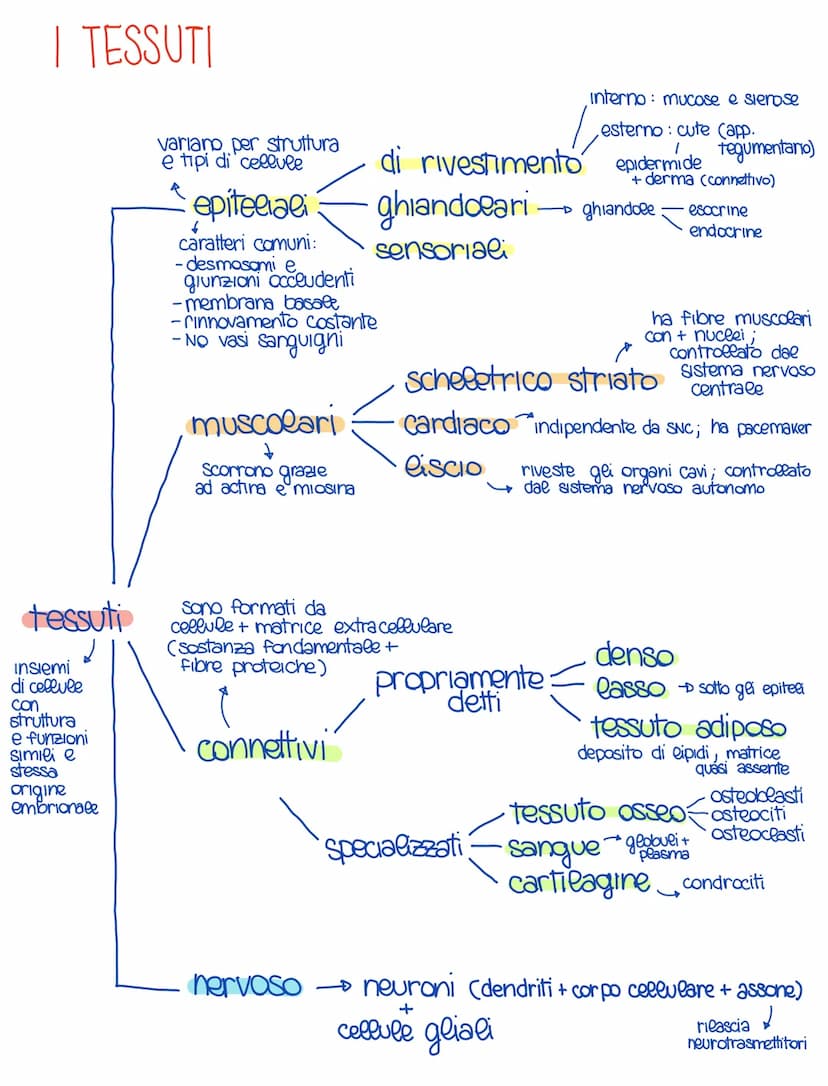 I TESSUTI
interno: mucose e sierose
esterno: cute (app.
tegumentano)
epidermide
+ derma (connettivo)
variano per struttura
e tipi di cellule
di rivestimento
epiteliali
ghiandolari
ghiandole
esocrine
endocrine
sensoriali
caratteri comuni:
- desmosomi e
giunzioni occludenti
- membrana basale
- rinnovamento costante
- No vasi sanguigni
ha fibre muscolari
con + nuclei;
controllato dal
sistema nervoso
centrale
scheletrico striato
muscolari
cardiaco
indipendente da SNC; ha pacemaker
liscio
riveste gli organi cavi; controllato
dal sistema nervoso autonomo
scorrono grazie
ad actina e miosina
tessuti
insiemi
di cellule
con
struttura
e funzioni
simili e
stessa
origine
embrionale
sono formati da
cellule + matrice extracellulare
(sostanza fondamentale +
fibre proteiche)
connettivi
propriamente
detti
denso
lasso
sotto gli epiteli
tessuto adiposo
deposito di lipidi, matrice
quasi assente
specializzati
tessuto osseo
osteoblasti
osteociti
osteoclasti
sangue
globuli +
plasma
cartilagine
condrociti
nervoso
neuroni (dendriti + corpo cellulare + assone)
+
cellule gliali
rilascia
neurotrasmettitori